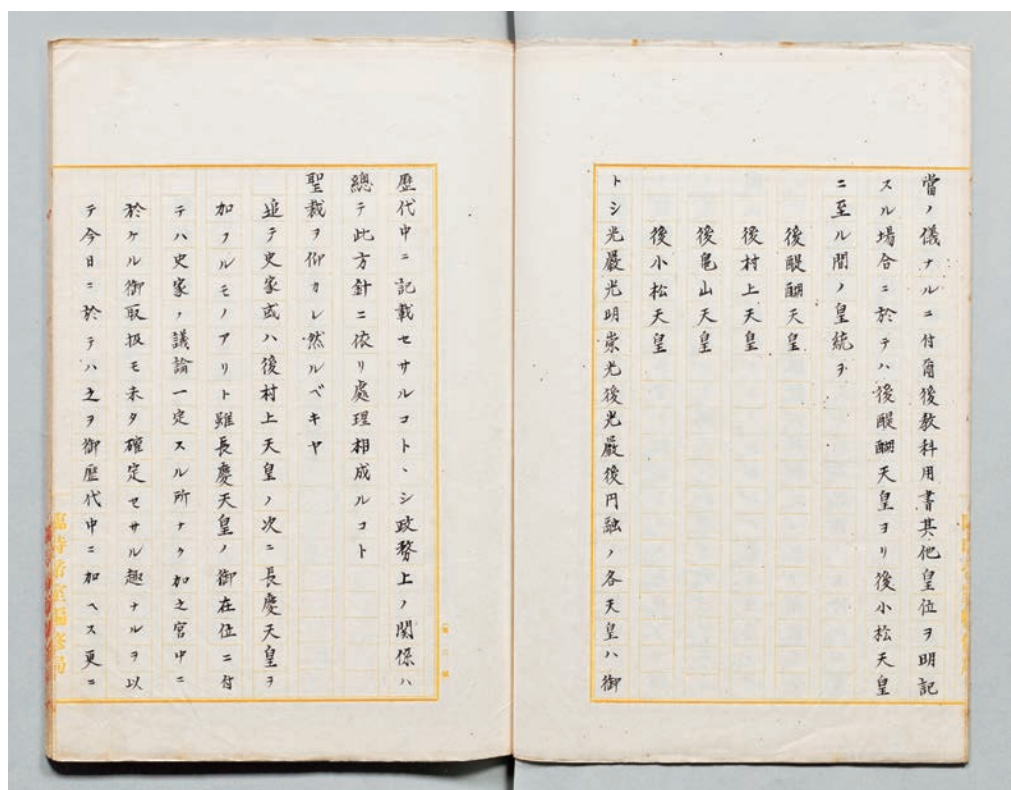 當ノ儀ナルニ付爾後教科用書其他皇位ヲ明記
スル場合ニ於テハ後醍醐天皇ヨリ後小松天皇
ニ至ル間ノ皇統ヲ
後醍醐天皇
後村上天皇
後亀山天皇
後小松天皇
トシ光嚴光明崇光後光嚴後円融ノ各天皇ハ御
歴代中ニ記載セサルコトヽシ政務上ノ関係ハ
總テ此方針ニ依リ處理相成ルコト
聖裁ヲ仰カレ然ルベキヤ
追テ史家或ハ後村上天皇ノ次ニ長慶天皇ヲ
加フルモノアリト雖長慶天皇ノ御在位ニ付
テハ史家ノ議論一定スル所ナク加之宮中ニ
於ケル御取扱モ未タ確定セサル趣ナルヲ以
テ今日ニ於テハ之ヲ御歴代中ニ加ヘス更ニ
臨時帝室編修局